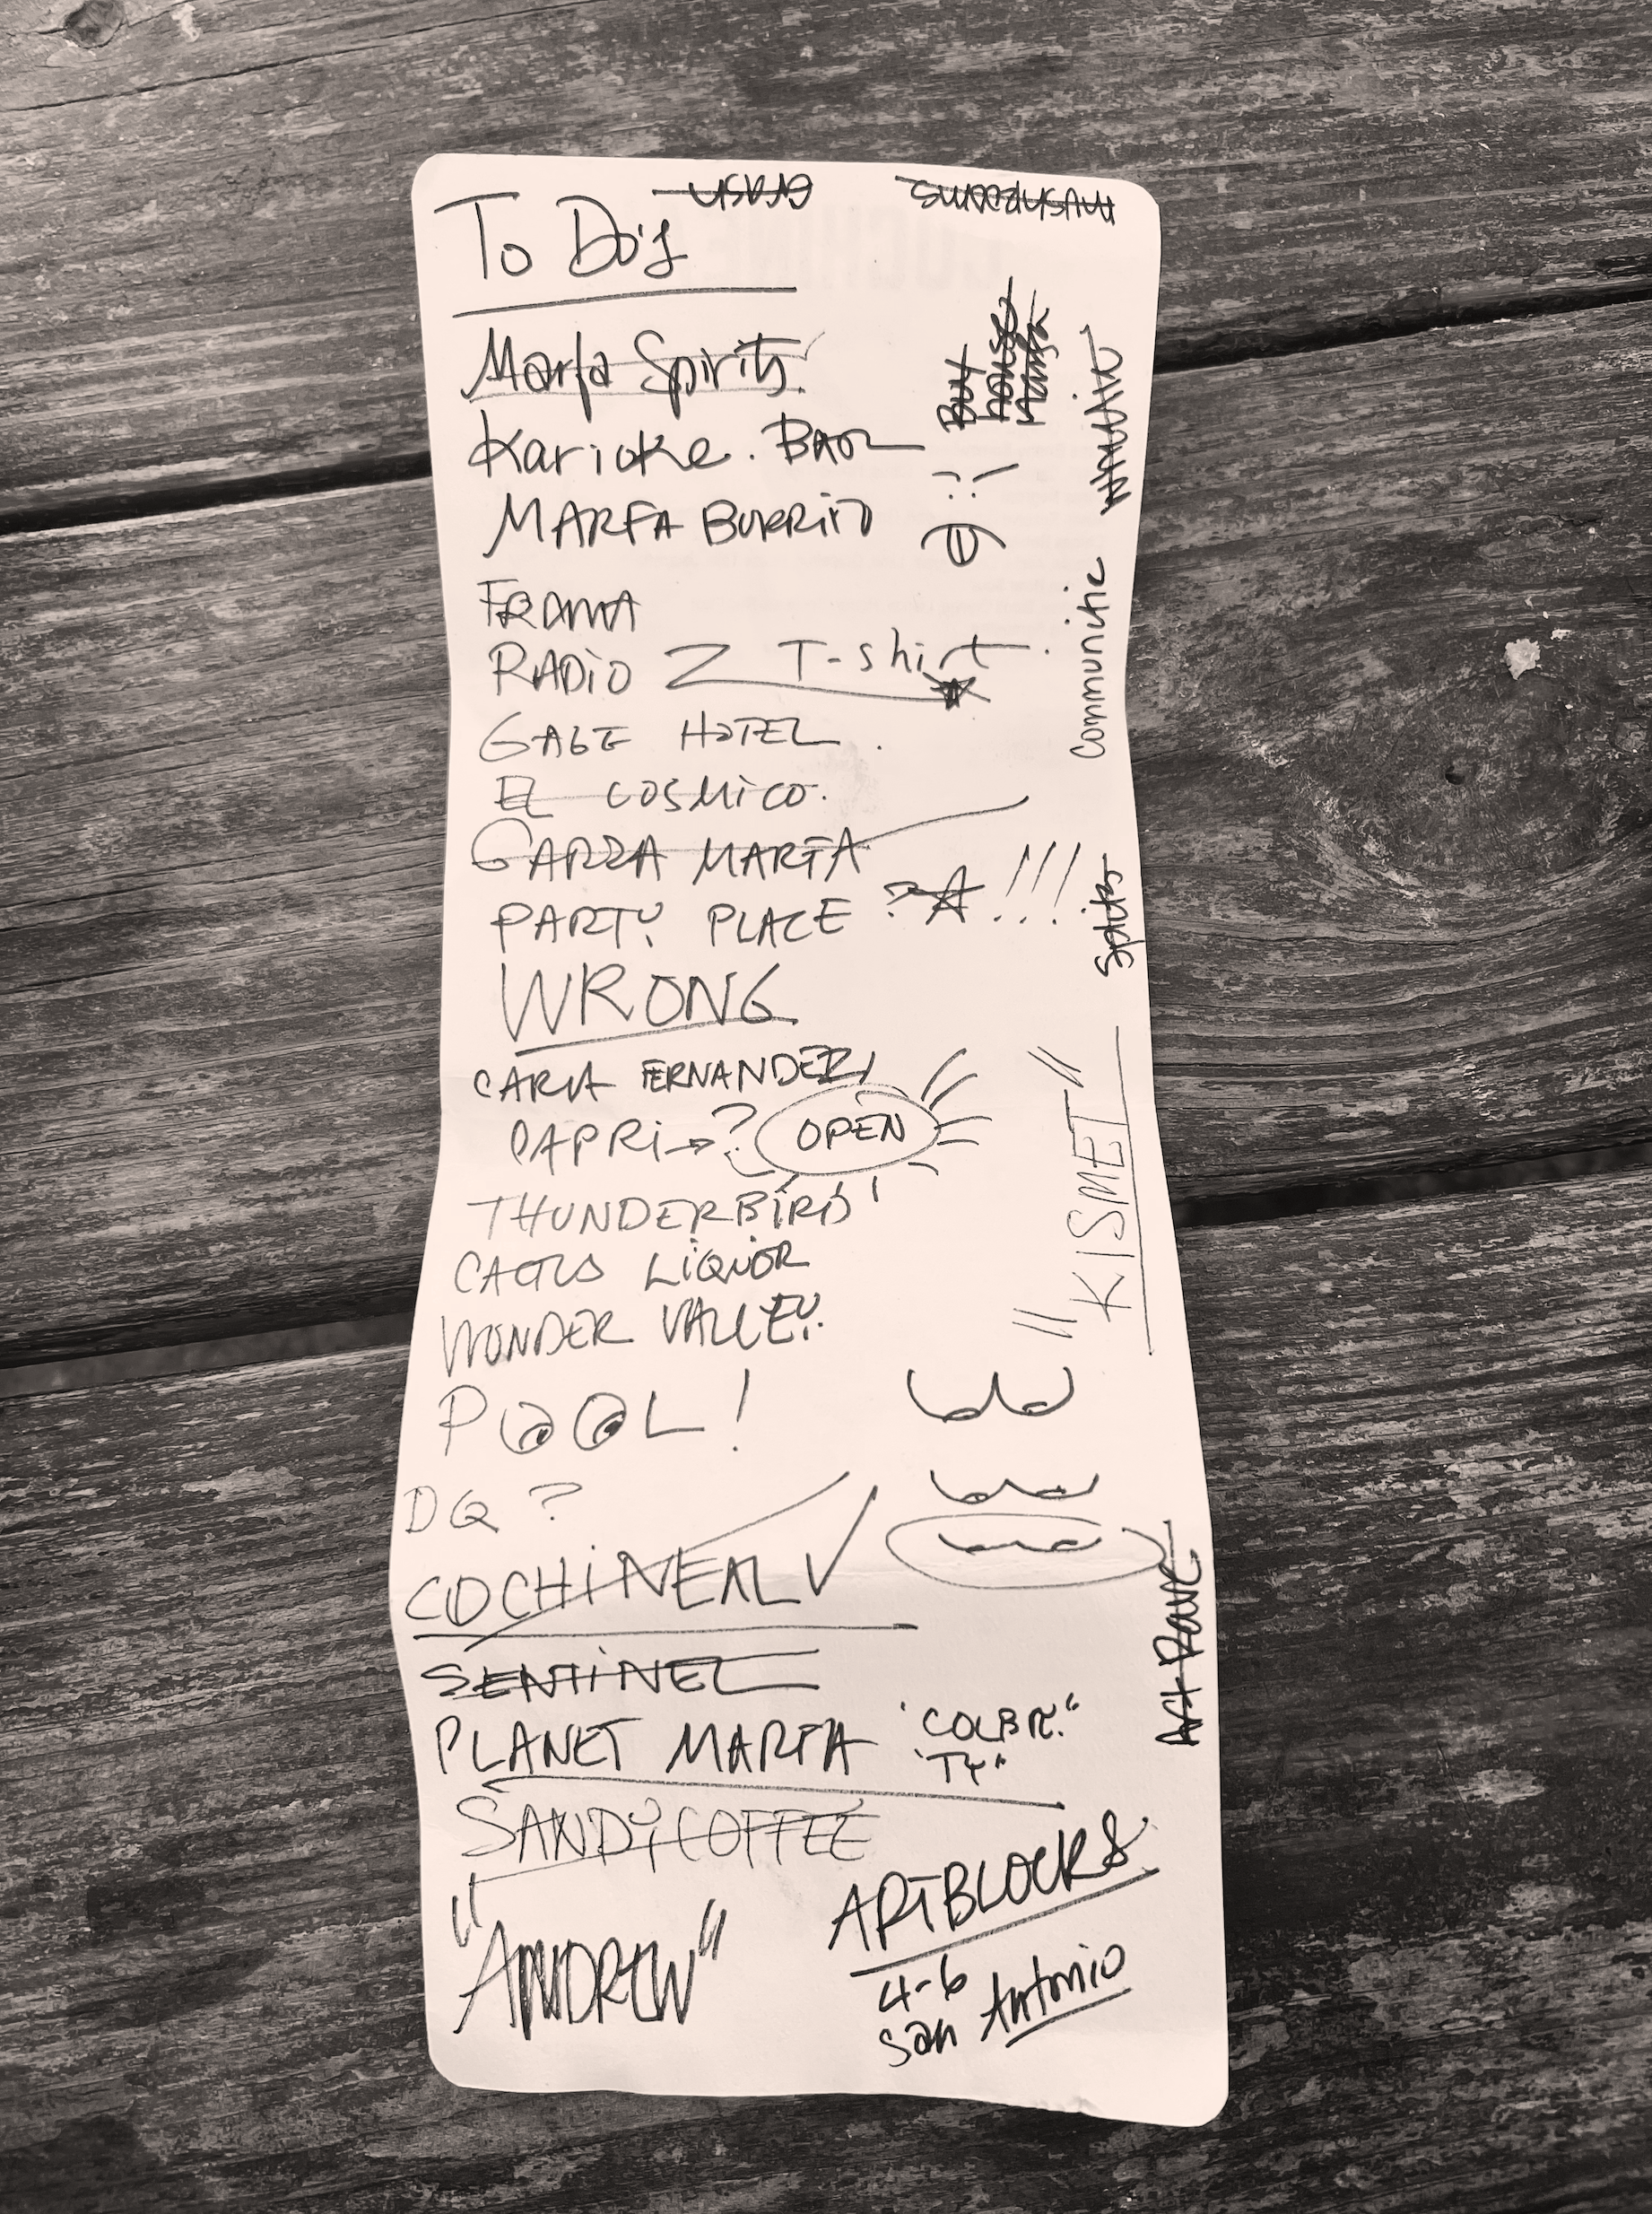 To Do's
Marfa Spirits.
Karioke. Bar
MARFA BURRITO
FRAMA
RADIO Z T-shirt
GAGE HOTEL.
EL COSMICO.
GARZA MARFA
PARTY PLACE ? !!!
WRONG
CARLA FERNANDEZ
CAPRI → ? OPEN
THUNDERBIRD
CACTUS LIQUOR
WONDER VALLEY.
POOL!
DQ ?
COCHINEAL ✓
SENTINEL
PLANET MARFA
"TY"
SANDY COFFEE
"ANDREW"
ARTBLOCKS
4-6
San Antonio
MUSHROOMS
GRASH
Buy
house
Marfa
Communitie
Splits
"KISMET"
Art Rave